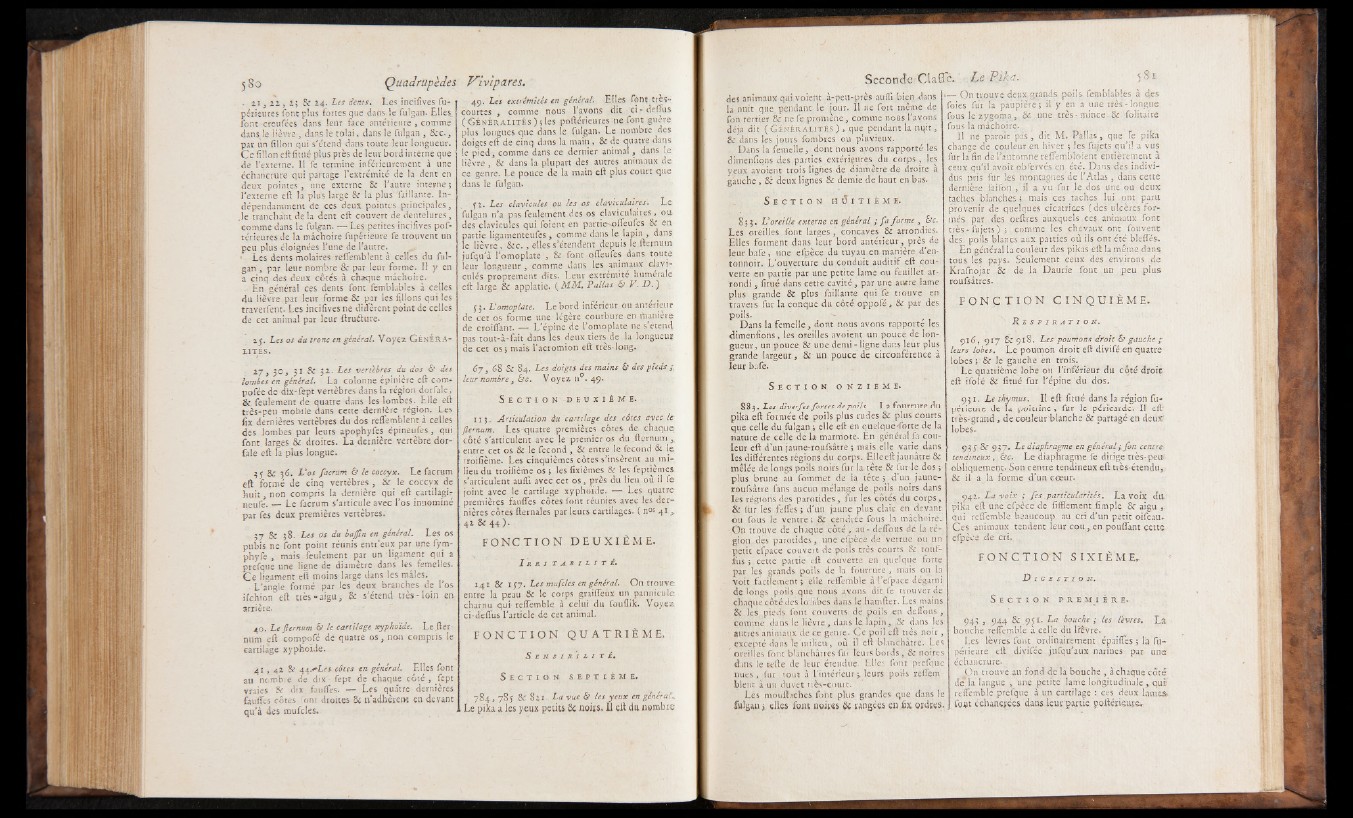 580 Quadrupèdes Vivipares.
21, 22, 23 & 24. Les dents. Les incisives su-
périeures sont plus fortes que dans le sulgan. Elles
sont creusées dans leur face antérieure, comme
dans le lièvre, dans le tolai, dans le sulgan, &c.,
par un sillon qui s'étend dans toute leur longueur.
Ce sillon est situé plus près de leur bord interne que
de l'externe. Il se termine inférieurement à une
échancrure qui partage l'extrémité de la dent en
deux pointes, une externe & l'autre interne;
l'externe est la plus large & la plus saillante. In-
dépendamment de ces deux pointes principales,
le tranchant de la dent est couvert de dentelures,
comme dans le sulgan. — Les petites incisives pos-
térieures de la mâchoire supérieure se trouvent un
peu plus éloignées l'une de l'autre.
Les dents molaires ressemblent à celles du sul-
gan, par leur nombre & par leur forme. Il y en
a cinq des deux côtés à chaque mâchoire.
En général ces dents sont semblables à celles
du lièvre par leur forme & par les sillons qui les
traversent. Les incisives ne diffèrent point de celles
de cet animal par leur structure.
25. Les os du tronc en général. Voyez GÉNÉRA-
LITÉS.
27, 30, 31 & 32. Les vertèbres du dos & des
lombes en général. La colonne épinière est com-
posée de dix-sept vertèbres dans la région dorsale,
& seulement de quatre dans les lombes. Elle est
très-peu mobile dans cette dernière région. Les
six dernières vertèbres du dos ressemblent à celles
des lombes par leurs apophyses épineuses, qui
sont larges & droites. La dernière vertèbre dor-
sale est la plus longue.
35 & 36. L'os sacrum & le coccyx. Le sacrum
est formé de cinq vertèbres, & le coccyx de
huit, non compris la dernière qui est cartilagi-
neuse. — Le sacrum s'articule avec l'os innominé
par ses deux premières vertèbres.
37 & 38. Les os du bassin en général. Les os
pubis ne sont point réunis entr'eux par une sym-
physe, mais seulement par un ligament qui a
presque une ligne de diamètre dans les femelles.
Ce ligament est moins large dans les mâles.
L'angle formé par les deux branches de l'os
ischion est très-aigu, & s'étend très-loin en
arrière.
40. Le sternum & le cartilage xyphoïde. Le ster-
num est composé de quatre os, non compris le
cartilage xyphoïde.
41, 42 & 44. Les côtes en général. Elles sont
au nombre de dix-sept de chaque côté, sept
vraies & dix fausses. — Les quatre dernières
fausses côtes sont droites & n'adhèrent en devant
qu'à des muscles.
49. Les extrémités en général. Elles sont très-
courtes, comme nous l'avons dit ci-dessus
(GÉNÉRALITÉS); les postérieures ne sont guère
plus longues que dans le sulgan. Le nombre des
doigts est de cinq dans la main, & de quatre dans
le pied, comme dans ce dernier animal, dans le
lièvre, & dans la plupart des autres animaux de
ce genre. Le pouce de la main est plus court que
dans le sulgan.
52. Les clavicules ou les os claviculaires. Le
sulgan n'a pas seulement des os claviculaires, ou
des clavicules qui soient en partie osseuses & en
partie ligamenteuses, comme dans le lapin, dans
le lièvre, &c., elles s'étendent depuis le sternum
jusqu'à l'omoplate, & sont osseuses dans toute
leur longueur, comme dans les animaux clavi-
culés proprement dits. Leur extrémité humérale
est large & applatie. (MM. Pallas & V. D.)
53. L'omoplate. Le bord inférieur ou antérieur
de cet os forme une légère courbure en manière
de croissant. — L'épine de l'omoplate ne s'étend
pas tout-à-fait dans les deux tiers de la longueur
de cet os; mais l'acromion est très-long.
67, 68 & 84. Les doigts des mains & des pieds;
leur nombre, &c. Voyez n°. 49.
SECTION DEUXIÈME.
113. Articulation du cartilage des côtes avec le
sternum. Les quatre premières côtes de chaque
côté s'articulent avec le premier os du sternum,
entre cet os & le second, & entre le second & le
troisième. Les cinquièmes côtes s'insèrent au mi-
lieu du troisième os; les sixièmes & les septièmes
s'articulent aussi avec cet os, près du lieu où il se
joint avec le cartilage xyphoïde. — Les quatre
premières fausses côtes sont réunies avec les der-
nières côtes sternales par leurs cartilages. (nos 41,
42 & 44).
FONCTION DEUXIÈME.
IRRITABILITÉ.
141 & 157. Les muscles en général. On trouve
entre la peau & le corps graisseux un pannicule
charnu qui ressemble à celui du souslik. Voyez
ci-dessus l'article de cet animal.
FONCTION QUATRIÈME.
SENSIBILITÉ.
SECTION SEPTIÈME.
784, 785 & 821. La vue & les yeux en général.
Le pika a les yeux petits & noirs. Il est du nombre
Seconde Classe. Le Pika. 581
des animaux qui voient à-peu-près aussi bien dans
la nuit que pendant le jour. Il ne sort même de
son terrier & ne se promène, comme nous l'avons
déja dit (GÉNÉRALITÉS), que pendant la nuit,
& dans les jours sombres ou pluvieux.
Dans la femelle, dont nous avons rapporté les
dimensions des parties extérieures du corps, les
yeux avoient trois lignes de diamètre de droite à
gauche, & deux lignes & demie de haut en bas.
SECTION HUITIÈME.
833. L'oreille externe en général; sa forme, &c.
Les oreilles sont larges, concaves & arrondies.
Elles forment dans leur bord antérieur, près de
leur base, une espèce de tuyau en manière d'en-
tonnoir. L'ouverture du conduit auditif est cou-
verte en partie par une petite lame ou feuillet ar-
rondi, situé dans cette cavité, par une autre lame
plus grande & plus saillante qui se trouve en
travers sur la conque du côté opposé, & par des
poils.
Dans la femelle, dont nous avons rapporté les
dimensions, les oreilles avoient un pouce de lon-
gueur, un pouce & une demi-ligne dans leur plus
grande largeur, & un pouce de circonférence à
leur base.
SECTION ONZIEME.
883. Les diverses sortes de poils. La fourrure du
pika est formée de poils plus rudes & plus courts
que celle du sulgan; elle est en quelque sorte de la
nature de celle de la marmote. En général sa cou-
leur est d'un jaune-roussâtre; mais elle varie dans
les différentes régions du corps. Elle est jaunâtre &
mêlée de longs poils noirs sur la tête & sur le dos;
plus brune au sommet de la tête; d'un jaune-
roussâtre sans aucun mélange de poils noirs dans
les régions des parotides, sur les côtés du corps,
& sur les fesses; d'un jaune plus clair en devant
ou sous le ventre; & cendrée sous la mâchoire.
On trouve de chaque côté, au-dessous de la ré-
gion des parotides, une espèce de verrue ou un
petit espace couvert de poils très courts & rous-
sus; cette partie est couverte en quelque sorte
par les grands poils de la fourrure, mais on la
voit facilement; elle ressemble à l'espace dégarni
de longs poils que nous avons dit se trouver de
chaque côté des lombes dans le hamster. Les mains
& les pieds sont couverts de poils en dessous,
comme dans le lièvre, dans le lapin, & dans les
autres animaux de ce genre. Ce poil est très noir,
excepté dans le milieu, où il est blanchâtre. Les
oreilles sont blanchâtres sur leurs bords, & noires
dans le reste de leur étendue. Elles sont presque
nues, sur-tout à l'intérieur; leurs poils ressem-
blent à un duvet très-court.
Les moustaches sont plus grandes que dans le
sulgan; elles sont noires & rangées en six ordres.
— On trouve deux grands poils semblables à des
soies sur la paupière; il y en a une très-longue
sous le zygoma, & une très-mince & solitaire
sous la mâchoire.
Il ne paroît pas, dit M. Pallas, que le pika
change de couleur en hiver; les sujets qu'il a vus
sur la fin de l'automne ressembloient entièrement à
ceux qu'il avoit observés en été. Dans des indivi-
dus pris sur les montagnes de l'Atlas, dans cette
dernière saison, il a vu sur le dos une ou deux
taches blanches; mais ces taches lui ont paru
provenir de quelques cicatrices (des ulcères for-
més par des oestres auxquels ces animaux sont
très-sujets); comme les chevaux ont souvent
des poils blancs aux parties où ils ont été blessés.
En général la couleur des pikas est la même dans
tous les pays. Seulement ceux des environs de
Krasnojar & de la Daurie sont un peu plus
roussâtres.
FONCTION CINQUIÈME.
RESPIRATION.
916, 917 & 918. Les poumons droit & gauche;
leurs lobes. Le poumon droit est divisé en quatre
lobes; & le gauche en trois.
Le quatrième lobe ou l'inférieur du côté droit
est isolé & situé sur l'épine du dos.
931. Le thymus. Il est situé dans la région su-
périeure de la poitrine, sur le péricarde. Il est
très-grand, de couleur blanche & partagé en deux
lobes.
935 & 937. Le diaphragme en général; son centre
tendineux, &c. Le diaphragme se dirige très-peu
obliquement. Son centre tendineux est très-étendu,
& il a la forme d'un cœur.
942. La voix; ses particularités. La voix du
pika est une espèce de sifflement simple & aigu,
qui ressemble beaucoup au cri d'un petit oiseau.
Ces animaux tendent leur cou, en poussant cette
espèce de cri.
FONCTION SIXIÈME.
DIGESTION.
SECTION PREMIÈRE.
943, 944 & 951. La bouche; les lèvres. La
bouche ressemble à celle du lièvre.
Les lèvres sont ordinairement épaisses; la su-
périeure est divisée jusqu'aux narines par une
échancrure.
On trouve au fond de la bouche, à chaque côté
de la langue, une petite lame longitudinale, qui
ressemble presque à un cartilage: ces deux lames
sont échancrées dans leur partie postérieure.